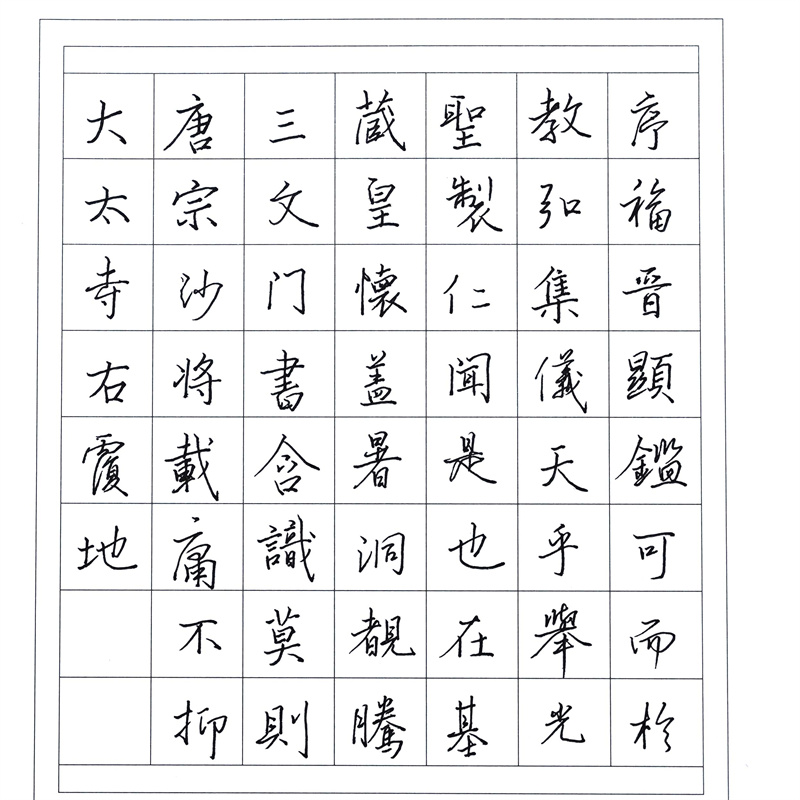 大唐三蔵聖教序
太宗文皇製弘福
寺沙门懷仁集晋
右将書盖闻儀顯
覆載含暑是天鑑
地庸識洞也乎可
不莫覩在舉而
抑則騰基光於